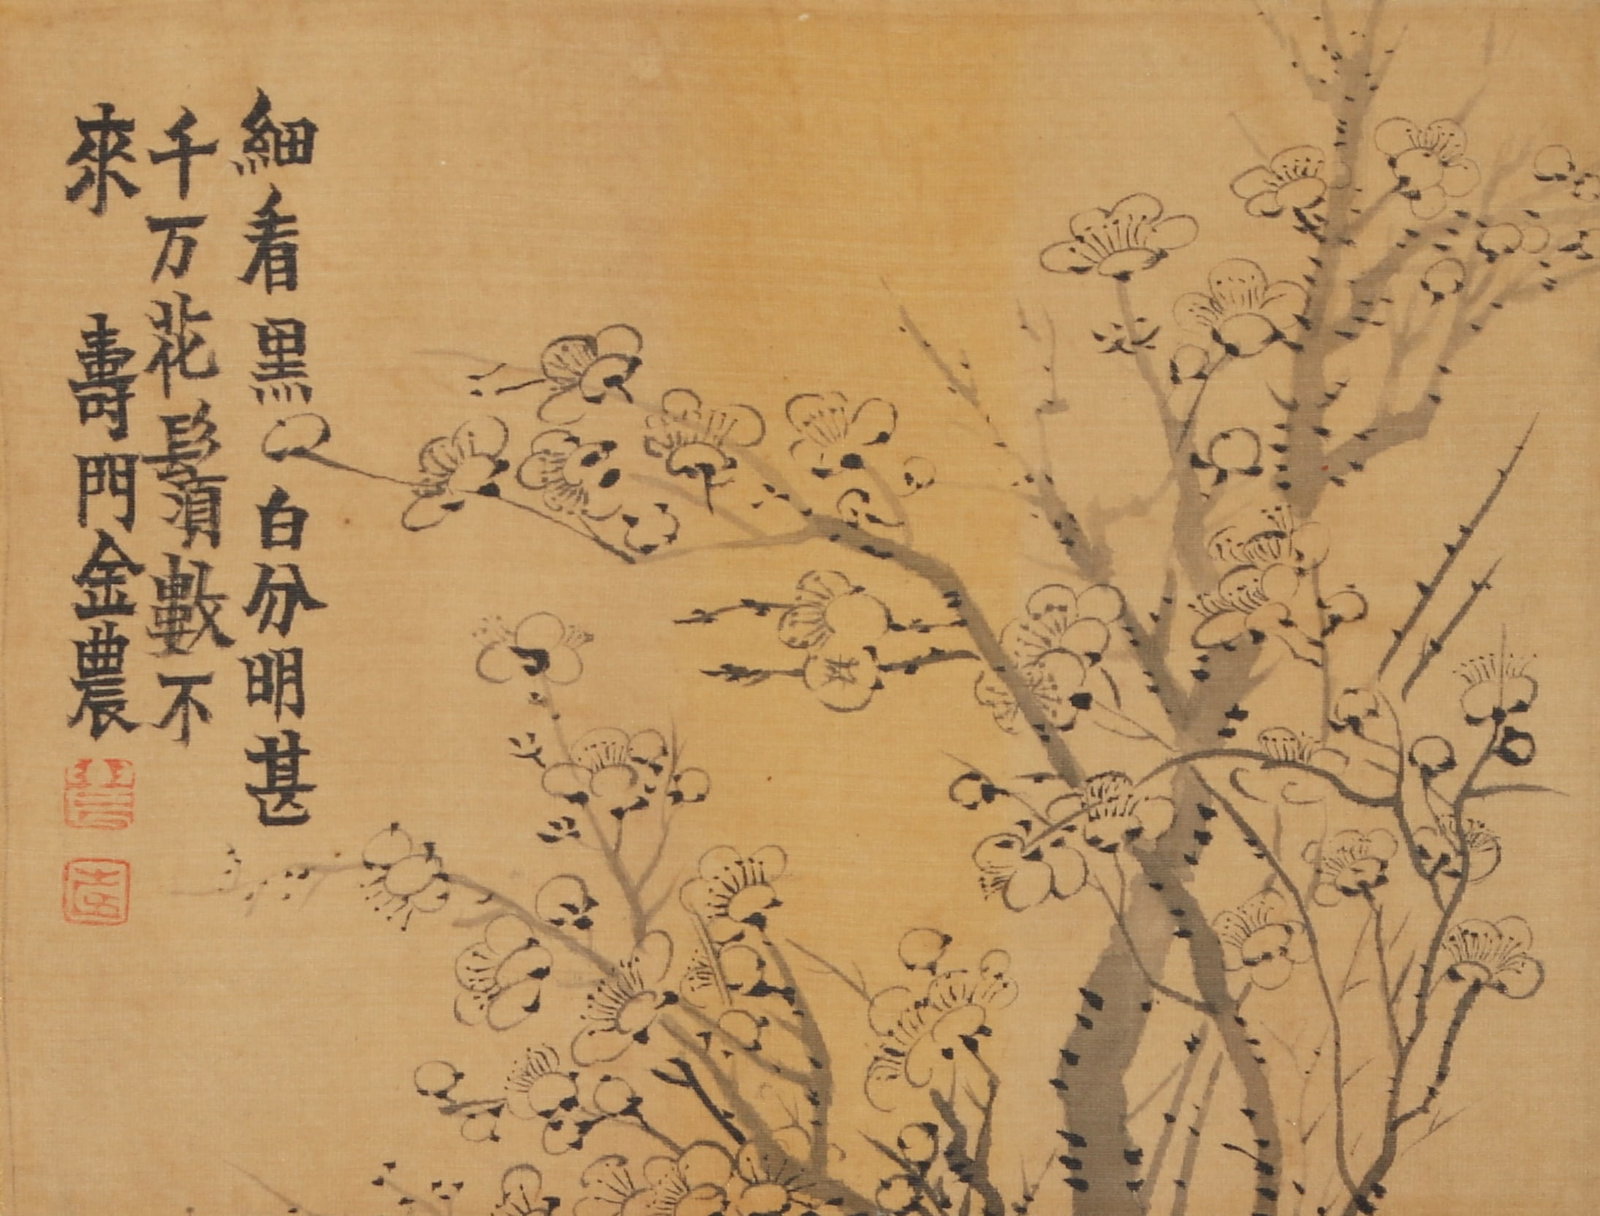 細看黑白分明甚
千万花鬚數不
來
壽門金農